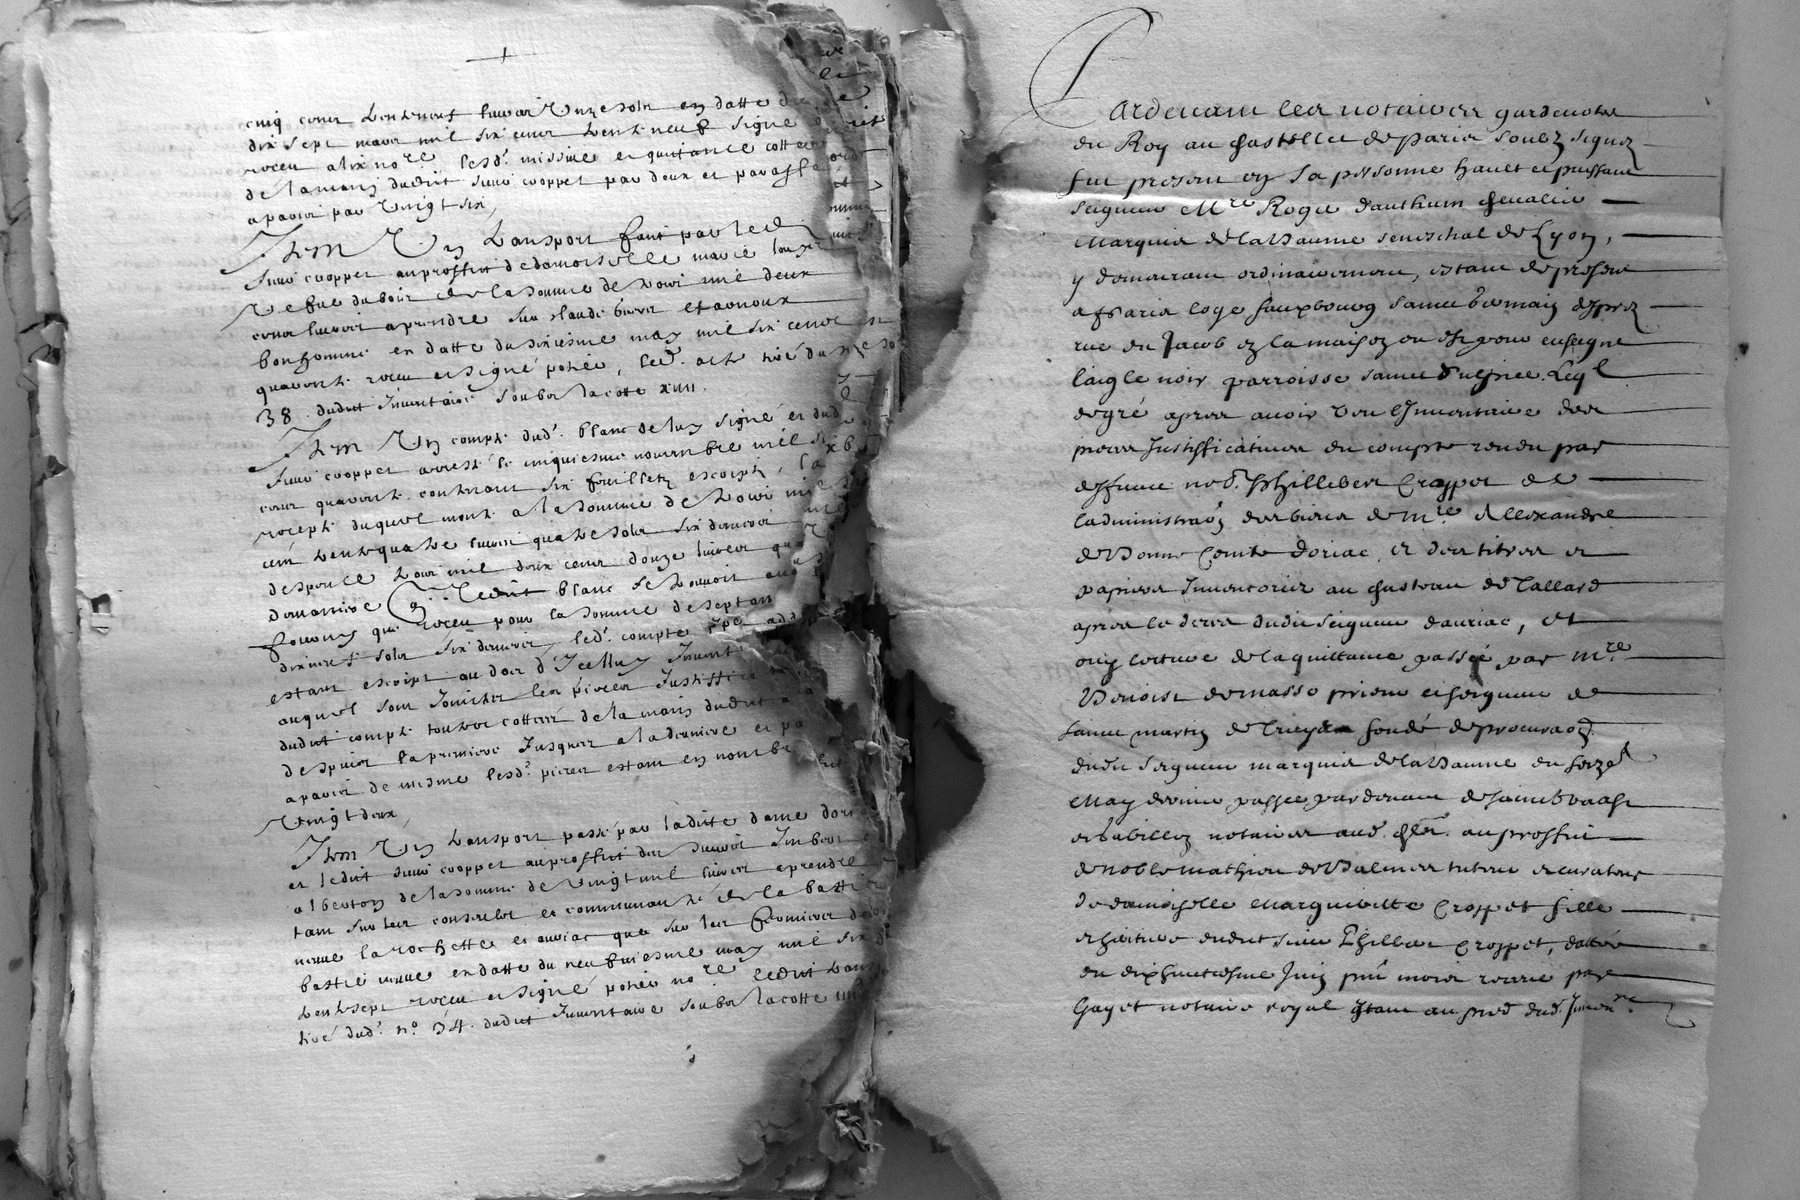 cinq cens trente neuf livres unze solz en datte du
dix sept mars mil six cens trente neuf signé
receu alix no.re lesd. missive et quittance cottées
de la main dudit sieur croppet par deux et paraffé
a parvis par vingt six
Item Un transport faict par led
sieur croppet au proffict de damoiselle marie
Vefve du bois de la somme de trois mil deux
cens livres a prendre sur claude et arnoux
bonhomme en datte du sixiesme may mil six cens
quarante receu et signé pohée, led. acte tiré du
38 . dudit Inventaire soubz la cotte xIIII.
Item Un compte dud. blanc de luy signé et dud
sieur croppet arresté le cinquiesme novembre mil six
cens quarante contenant six feuilletz escriptz, la
recepte duquel monte a la somme de trois mil
cent trente quatre livres quatre solz six deniers
despence trois mil deux cens douze livres
de maniere q Ledit blanc se trouvoit
fourny que receu pour la somme de septan
dix neuf solz six deniers, led. compte
estant escript au dos d'Icelluy
auquel sont Joinctes les pieces Justifficatives
dudit compte toutes cottées de la main dudit
despuis la premiere Jusques a la derniere et
a parvis de mesme lesd. pieces estant en nombre
Vingt deux,
Item Un transport passé par ladite dame
et ledit sieur croppet au proffict des sieurs Imbert
alberton de la somme de vingt mil livres a prendre
tant sur les consulz et communauté de la bastie
neuve la rochette et auriac que sur les fermiers
bastie neuve en datte du neufviesme may mil six
trente sept receu et signé pohée no.re ledit trans
tiré dud. n.o 34 . dudit Inventaire soubz la cotte
Pardevant les notaires gardenotes
du Roy au chastellet de Paris soubz signez
fut present en sa personne hault et puissant
seigneur M.re Roger d'authum chevalier
Marquis de la Baume seneschal de Lyon,
y demeurant ordinairement, estant de present
a Paris logé fauxbourg sainct Germain desprez
rue du Jacob en la maison ou est pour enseigne
l'aigle noir parroisse sainct Sulpice. Leql
de gré apres avoir veu l'Inventaire des
pieces Justifficatives du compte rendu par
deffunct no. Phillebert Croppet de
l'administraon des biens de M.re Allexandre
de Bonne Comte doriac, et des titres et
papiers Inventoriez au chasteau de Tallard
apres le deces dudit seigneur dauriac, et
ouy lecture de la quittance passée par M.re
Benoist demasso prieur et seigneur de
sainct martin de fondé de procuraon
dudit seigneur marquis de la Baume du seize
May dernier passée pardevant de sainct vaast
et babillon notaires aud. chlet. au proffict
de noble mathieu de Balmes tuteur et curateur
de damoiselle Margueritte Croppet fille
et heritiere dudit sieur Phillber Croppet, dattée
du dixhuictiesme Juin put mois receue par
Gayet notaire royal estant au pied dud. Inven.re